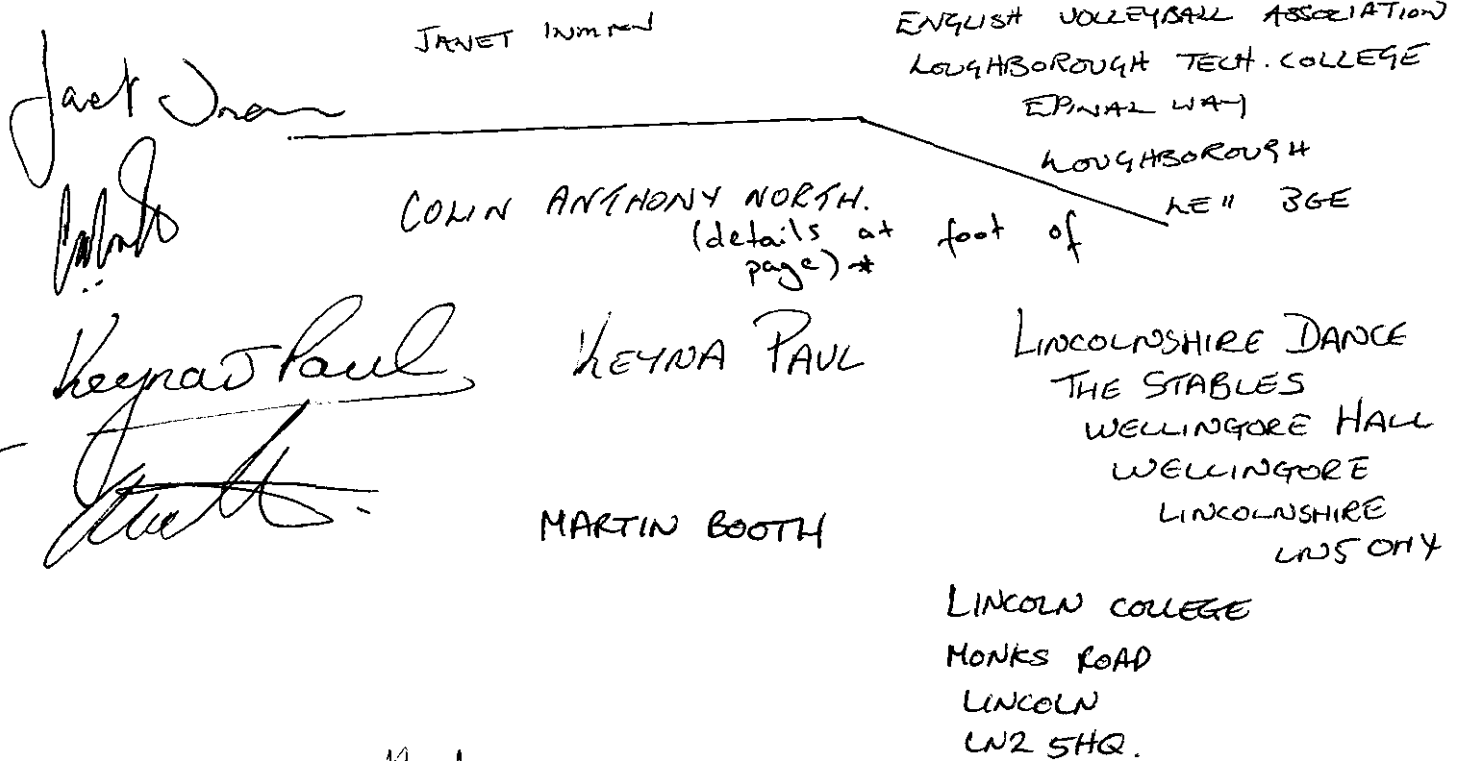 JANET INMAN
ENGLISH VOLLEYBALL ASSOCIATION
LOUGHBOROUGH TECH. COLLEGE
EPINAL WAY
LOUGHBOROUGH
LE11 3GE
COLIN ANTHONY NORTH.
(details at foot of
page) *
Keyna J Paul
KEYNA PAUL
LINCOLNSHIRE DANCE
THE STABLES
WELLINGORE HALL
WELLINGORE
LINCOLNSHIRE
LN5 0HX
MARTIN BOOTH
LINCOLN COLLEGE
MONKS ROAD
LINCOLN
LN2 5HQ.